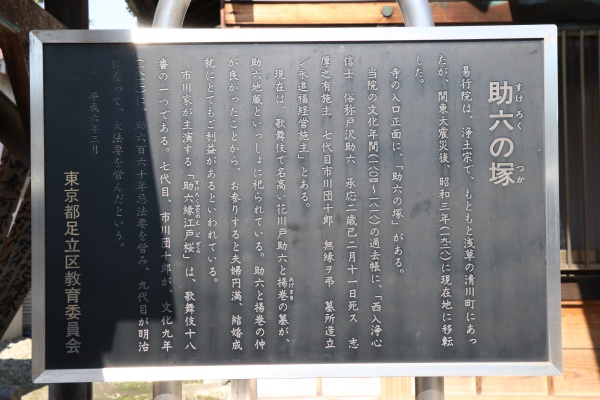 助六の塚
すけろく
つか
易行院は、浄土宗で、もともと浅草の清川町にあっ
たが、関東大震災後、昭和三年(一九二八)に現在地に移転
した。
寺の入口正面に、「助六の塚」がある。
当院の文化年間(一八〇四〜一八一八)の過去帳に、「西入浄心
信士 俗称戸沢助六 承応二歳己二月十一日死ス 志
厚之有施主 七代目市川団十郎 無縁ヲ弔 墓所造立
シ永追福経営施主」とある。
現在は、歌舞伎で名高い花川戸助六と揚巻の墓が、
あげまき
助六地蔵といっしょに祀られている。助六と揚巻の仲
が良かったことから、お参りすると夫婦円満、結婚成
就にとてもご利益があるといわれている。
市川家が主演する「助六縁江戸桜」は、歌舞伎十八
番の一つである。七代目、市川団十郎が、文化九年
(一八一二)に、助六百六十年忌法要を営み、九代目が明治
になって、大法要を営んだという。
平成六年三月
東京都足立区教育委員会